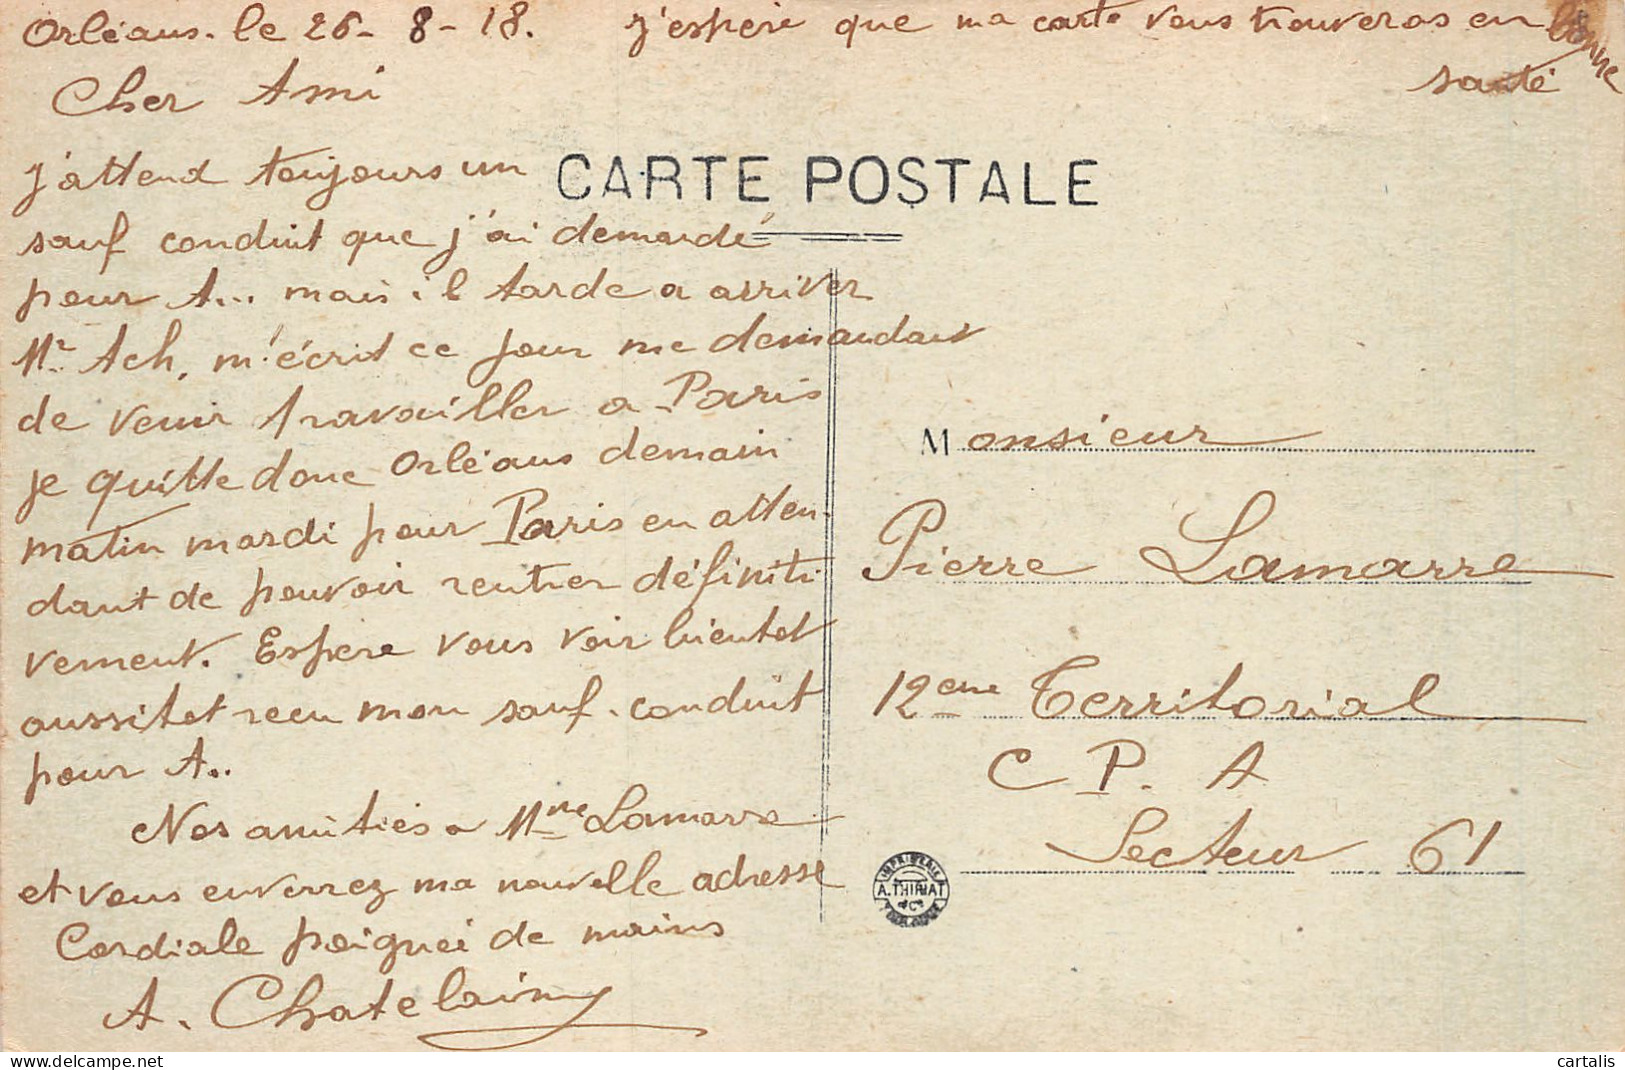 Orléans. le 26-8-18. J'espère que ma carte vous trouveras en bonne
santé
Cher Ami
J'attend toujours un
sauf conduit que j'ai demandé
pour A... mais il tarde a arriver
Mr Ach, m'écrit ce jour me demandant
de venir travailler a Paris
je quitte donc Orléans demain
matin mardi pour Paris en atten-
dant de pouvoir rentrer définiti-
vement. Espère vous voir bientot
aussitot recu mon sauf-conduit
pour A..
Nos amitiés a Mme Lamarre
et vous enverrez ma nouvelle adresse
Cordiale poignei de mains
A. Chatelain
CARTE POSTALE
Monsieur
Pierre Lamarre
12eme Territorial
C P. A
Secteur 61
IMPRIMERIE
A. THIRIAT
& Cie
TOULOUSE
cartalis